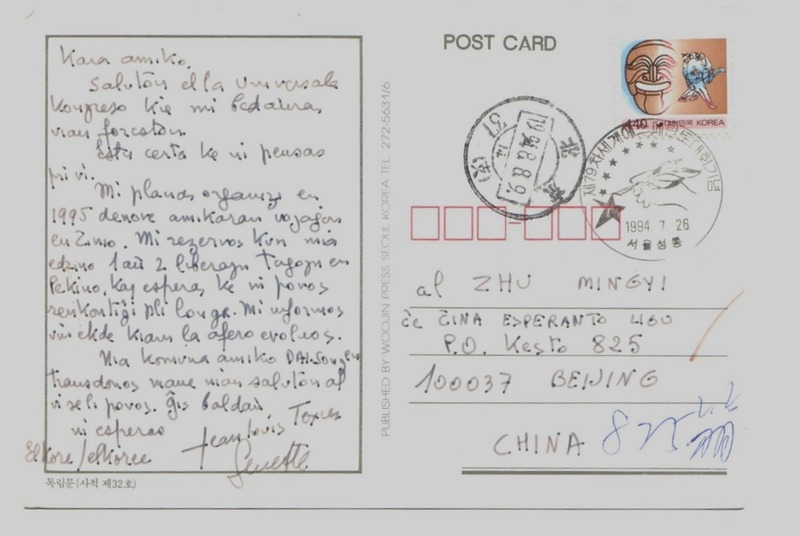 POST CARD
Kara amiko,
Saluton el la Universala
Kongreso kie mi bedaŭras
vian foreston.
Estu certa ke ni pensas
pri vi.
Mi planas organizi en
1995 denove amikaran vojaĝon
en Ĉinio. Mi rezervos kun mia
edzino 1 aŭ 2 liberajn tagojn en
Pekino, kaj esperas ke ni povos
renkontiĝi pli longe. Mi informos
vin ekde kiam la afero evoluos.
Nia komuna amiko DAI Song
transdonos mane nian saluton al
vi se li povos. Ĝis baldaŭ
ni esperas
Jean Louis Texier
Elkore/elkoree
Ginette
독립문(사적 제32호)
PUBLISHED BY WOOJIN PRESS SEOUL KOREA TEL 272-5631/6
440 대한민국 KOREA
제79차세계에스페란토대회기념
1994. 7. 26
서울성동
北京
37
1994.8.8.9
al ZHU MINGYI
ĉe ĈINA ESPERANTO LIGO
P.O. Kesto 825
100037 BEIJING
CHINA 825